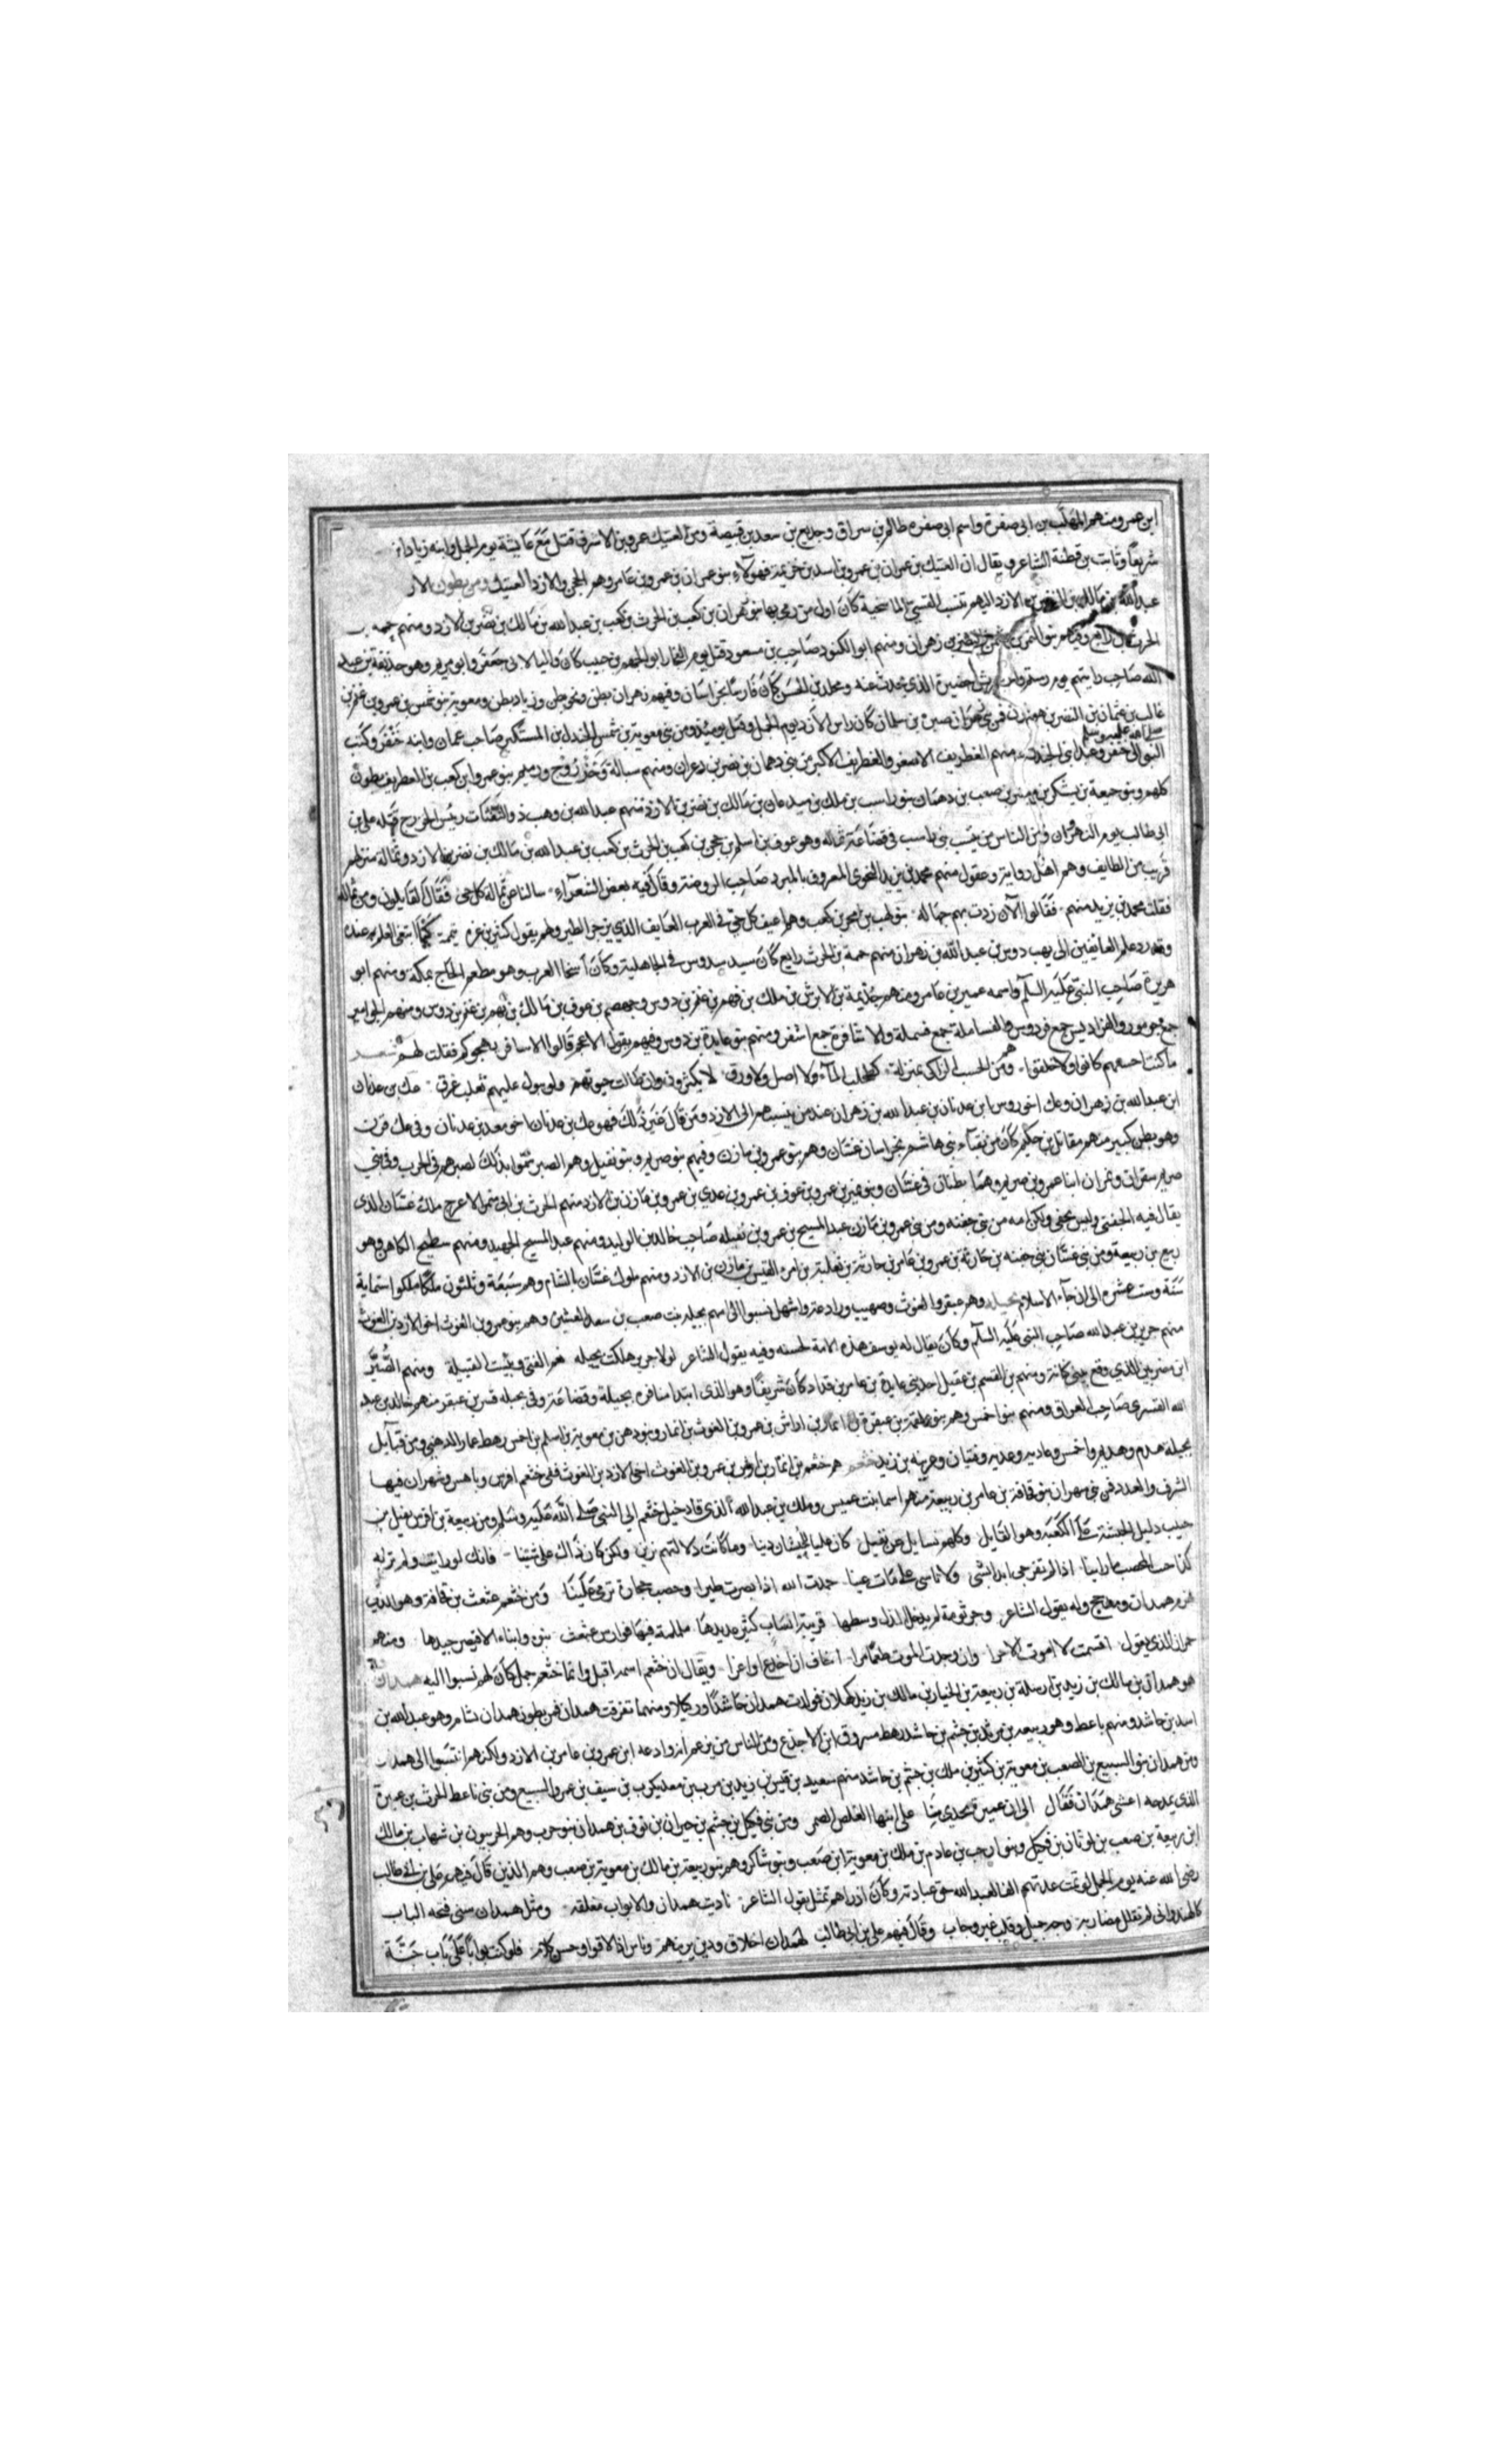 ابن عمرو ومنهم المهلب بن ابى صفرة واسم ابى صفره ظالم بن سراق وجديع بن سعد بن قبيصة ومن العتيك عمرو بن الاشرف قتل مع عايشة يوم الجمل وابنه زياد
شريفا وثابت بن قطنة الشاعر ويقال ان العتيك بن عمران بن عمرو بن اسد بن خزيمة فهولاء بنو عمران بن عمرو بن عامر وهم الحجر والازد العتيك ومن بطون الازد
عبد الله بن مالك بن الازد اليهم تنسب القسى الماسخية كان اول من رمى بها بنو زهران بن كعب بن الحرث بن كعب بن عبد الله بن مالك بن نضر بن الازد ومنهم
بن زهران ومنهم ابو الكنود صاحب بن مسعود قتل يوم ابو الجهم بن حبيب كان واليا لابى جعفر وابو مريم وهو حذيفة بن عبد
الله صاحب رايتهم يوم رستم الذى يحدث عنه ومحمد بن الحسن كان فارسا بخراسان وفيهم زهران بطن ونحو بطن وزياد بطن ومعوية بنو شمس بن عمرو بن غنم بن
غالب بن عثمان بن النضر بن صبرة بن سلمان كان راس الازد يوم الجمل وقتل يوميذ ومن بنى معوية بن شمس الجلندى بن المستكبر صاحب عمان وابنه جيفر وكتب
صلى الله عليه وسلم
النبى الى جيفر وعبد ابنى الجلندى منهم الغطريف الاصغر والغطريف الاكبر من بنى دهمان بن نصر بن زهران ومنهم سبالة بنو عمرو بن كعب بن الغطريف بطون
كلهم وبنو جعيمة بن يشكر بن مبشر بن صعب بن دهمان بنو راسب بن ملك بن ميدعان بن مالك بن نضر بن الازد منهم عبد الله بن وهب ذو الثفنات رئيس الخوارج قتله على بن
ابى طالب يوم النهروان ومن الناس من ينسب بنى راسب فى قضاعة ثماله وهو عوف بن اسلم بن حجن بن كعب بن الحرث بن كعب بن عبد الله بن مالك بن نضر بن الازد وثمالة منزلهم
قريب من الطايف وهم اهل روية وعقول منهم محمد بن يزيد النحوى المعروف بالمبرد صاحب الروضة وقال فيه بعض الشعراء سالنا عن ثمالة كل حى فقال القايلون ومن ثماله
فقلت محمد بن يزيد منهم فقالوا الآن زدت بهم جهاله بنو لهب بن احجر بن كعب وهم اعيف كل حى فى العرب العايف الذى يزجر الطير ولهم يقول كثير بن عزه تيممت لهبا ابتغى العلم عنده
وقد رد علم العايفين الى لهب دوس بن عبد الله بن زهران منهم حممة بن الحرث بن رافع كان سيد دوس فى الجاهلية وكان اسخا العرب وهو مطعم الحاج بمكه ومنهم ابو
هريرة صاحب النبى عليه السلم واسمه عمير بن عامر ومنهم جذيمة بن الابرش بن ملك بن فهم بن غنم بن دوس وجهضم بن عوف بن مالك بن فهم بن غنم بن دوس ومنهم الجرامير
جمع جرموز والقراديس جمع قردوس والقساملة جمع قسملة والاشاقرة جمع اشقر ومنهم بنو عايذة بن دوس وفيهم يقول الاعجم قالوا الاساقر يهجوكم فقلت لهم
ما كنت احسبهم كانوا ولا خلقوا وهم من الحسب الزاكى بمنزلة كطحلب الماء ولا اصل ولا ورق لا يكثرون وان طالت حيوتهم ولو يبول عليهم ثعلب غرقوا عك بن عدنان
ابن عبد الله بن زهران وعك اخو دوس ابن عدنان بن عبد الله بن زهران عند من ينسبهم الى الازد ومن قال غير ذلك فهو عك بن عدنان اخو معد بن عدنان وفى عك قرن
وهو بطن كبير منهم مقاتل بن حكيم كان من نقباء بنى هاشم بخراسان غسان وهم بنو عمرو بن مازن وفيهم بنو صريم وبنو نفيل وهم الصبر سموا بذلك لصبرهم فى الحرب وفى بنى
صريم سقراق ونمران ابنا عمرو بن صريم وهما بطنان فى غسان وبنو عمرو بن عوف بن عمرو بن عدى بن عمرو بن مازن بن الازد منهم الحرث بن ابى شمر الاعرج ملك غسان الذى
يقال فيه الجفنى وليس بجفنى ولكن امه من بنى جفنه ومن بنى عمرو بن مازن عبد المسيح بن عمرو بن نفيله صاحب خالد بن الوليد ومنهم عبد المسيح الجهبذ ومنهم سطيح الكاهن وهو
ربيع بن ربيعة ومن بنى غسان بنى جفنه بن حارثة بن عمرو بن عامر بن حارثة بن ثعلبة بن امرء القيس بن مازن بن الازد ومنهم ملوك غسان بالشام وهم سبعة وثلثون ملكا ملكوا ستماية
سنة وست عشره الى ان جاء الاسلام بجيله وهم عبقر والغوث وصهيب ووادعة واشهل نسبوا الى امهم بجيله بنت صعب بن سعد العشيرة وهم بنو عمرو بن الغوث اخى الازد بن الغوث
منهم جرير بن عبد الله صاحب النبى عليه السلم وكان يقال له يوسف هذه الامة لحسنه وفيه يقول الشاعر لولا جرير هلكت بجيله نعم الفتى وبئست القبيلة ومنهم
ومنهم بن القسم بن عقيل احد بنى عايذة بن عامر بن قداد كان شريفا وهو الذى ابتدا منافرة بجيلة وقضاعة وفى بجيله قسر بن عبقر منهم خالد بن عبد
الله القسرى صاحب العراق ومنهم بنو احمس وهم بنو علقمة بن عبقر بن انمار بن اراش بن عمرو بن الغوث بن انمار وبنو دهن بن معوية بن اسلم بن احمس رهط عمار الدهنى ومن قبايل
بجيله هدم وهديم واحمس وعاديه وعديه وفتيان وعرينه بن زيد خثعم هم خثعم بن انمار بن اراش بن عمرو بن الغوث اخى الازد بن الغوث ففى خثعم افرس وناهس وشهران فيها
الشرف والعدد فمن بنى شهران بنو قحافة بن عامر بن ربيعة منهم اسما بنت عميس وملك بن عبد الله الذى قاد خيل خثعم الى النبى صلى الله عليه وسلم ومن ربيعة بن افرس نفيل بن
حبيب دليل الحبشة على الكعبة وهو القايل وكلهم يسايل عن نفيل كان عليا للحبشان دينا وما كانت دلالتهم بزين ولكن كان ذاك على شينا فانك لو رايت ولم تريه
لدا جنب المحصب ما راينا اذا لم تفرحى ابدا بشى ولا تاسى على ما فات عينا حمدت الله اذ ابصرت طيرا وحصب حجارة ترمى علينا ومن خثعم عثعث بن قحافة وهو الذى
هزم همدان ومذحج وله يقول الشاعر وجرثومة لم يدخل الذل وسطها قريبة انساب كثير عديدها ململمة فيها فوارس عثعث بنوه وابناء الاقيصر جيدها ومنهم
حمران الذى يقول اقسمت لا اموت الا حرا وان وجدت الموت طعما مرا اخاف ان اخدع او اغرا ويقال ان خثعم اسمه اقبل وانما خثعم جمل كان لهم نسبوا اليه همدان
هو همدان بن مالك بن زيد بن اوسلة بن ربيعة بن الخيار بن مالك بن زيد بن كهلان فولدت همدان حاشدا وبكيلا ومنهما تفرقت همدان فمن بطون همدان شام وهو عبد الله بن
اسد بن حاشد ومنهم ناعط وهو ربيعه بن مرثد بن جشم بن حاشد رهط مسروق ابن الاجدع ومن الناس من يزعم ان وادعه ابن عمرو بن عامر بن الازد ولكنهم انتسبوا الى همدان
ومن همدان بنو السبيع بن الصعب بن معوية بن كثير بن ملك بن جشم بن حاشد منهم سعيد بن قيس بن زيد بن مرب بن معديكرب بن سيف بن عمرو السبيع ومن بنى ناعط الحرث بن عميرة
الذى يمدحه اعشى همدان فقال الى ابن عميرة تحدى بنا على اينها القلص الضمر ومن بنى فيكيل بن جشم بن خيران بن نوف بن همدان بنو حرب وهم الحربيون بن شهاب بن مالك
ابن ربيعة بن صعب بن لوثان بن فكيل وبنو ارحب بن عادم بن ملك بن معوية ابن صعب وبنو شاكر وهم بنو ربيعة بن مالك بن معوية بن صعب وهم الذين قال فيهم على بن ابى طالب
رضى الله عنه يوم الجمل لو تمت عدتهم الفا لعبد الله حق عبادته وكان اذا راهم تمثل بقول الشاعر ناديت همدان والابواب مغلقه ومثل همدان سنى فتحه الباب
كالهندوانى لم تفلل مضاربه وجه جميل وقلب غير وجاب وقال فيهم على بن ابى طالب لهمدان اخلاق ودين يزينهم وناس اذا لاقوا وحسن كلام فلو كنت بوابا على باب جنة